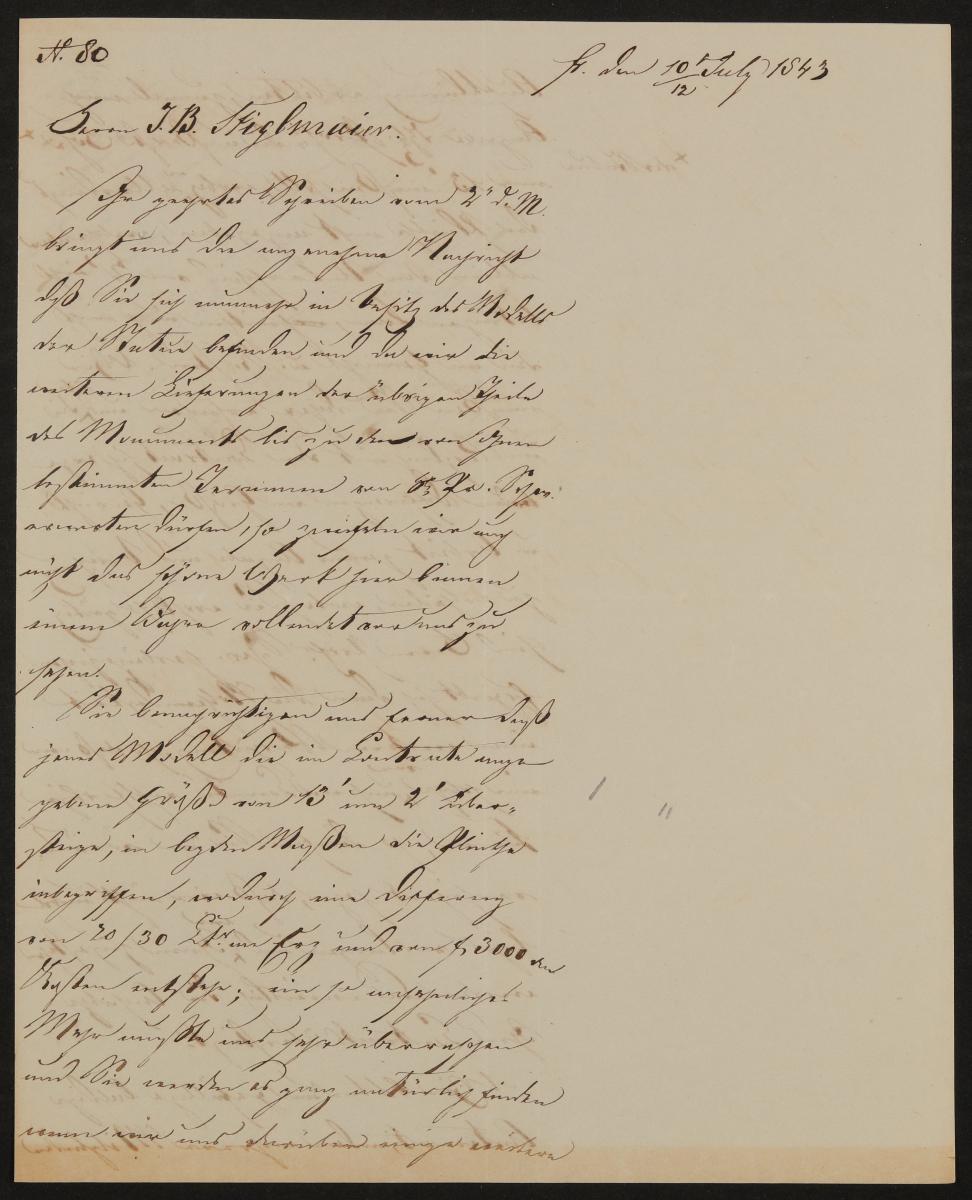 N. 80
F. den 10/12 July 1843
Herrn J. B. Stiglmaier.
Ihr geehrtes Schreiben vom 2n d. M.
bringt uns die angenehme Nachricht
daß Sie sich nunmehr in Besitz des Modells
der Statue befinden und da wir die
weiteren Lieferungen der übrigen Theile
des Monuments bis zu den von Ihnen
bestimmten Terminen von
erwarten dürfen, so zweifeln wir auch
nicht das schöne Werk hier binnen
einem Jahre vollendet vor uns zu
sehen.
Sie benachrichtigen uns ferner daß
jenes Modell die im Contrakte ange
gebene Größe von 13' um 2' über-
steige, in beyden Maßen die Plinthe
inbegriffen, wodurch eine Differenz
von 20/30 Ctr. an Erz und von f 3000 an
Kosten entstehe; ein so ansehnliches
Mehr mußte uns sehr überraschen
und Sie werden es ganz natürlich finden
wenn wir uns darüber einige weitere